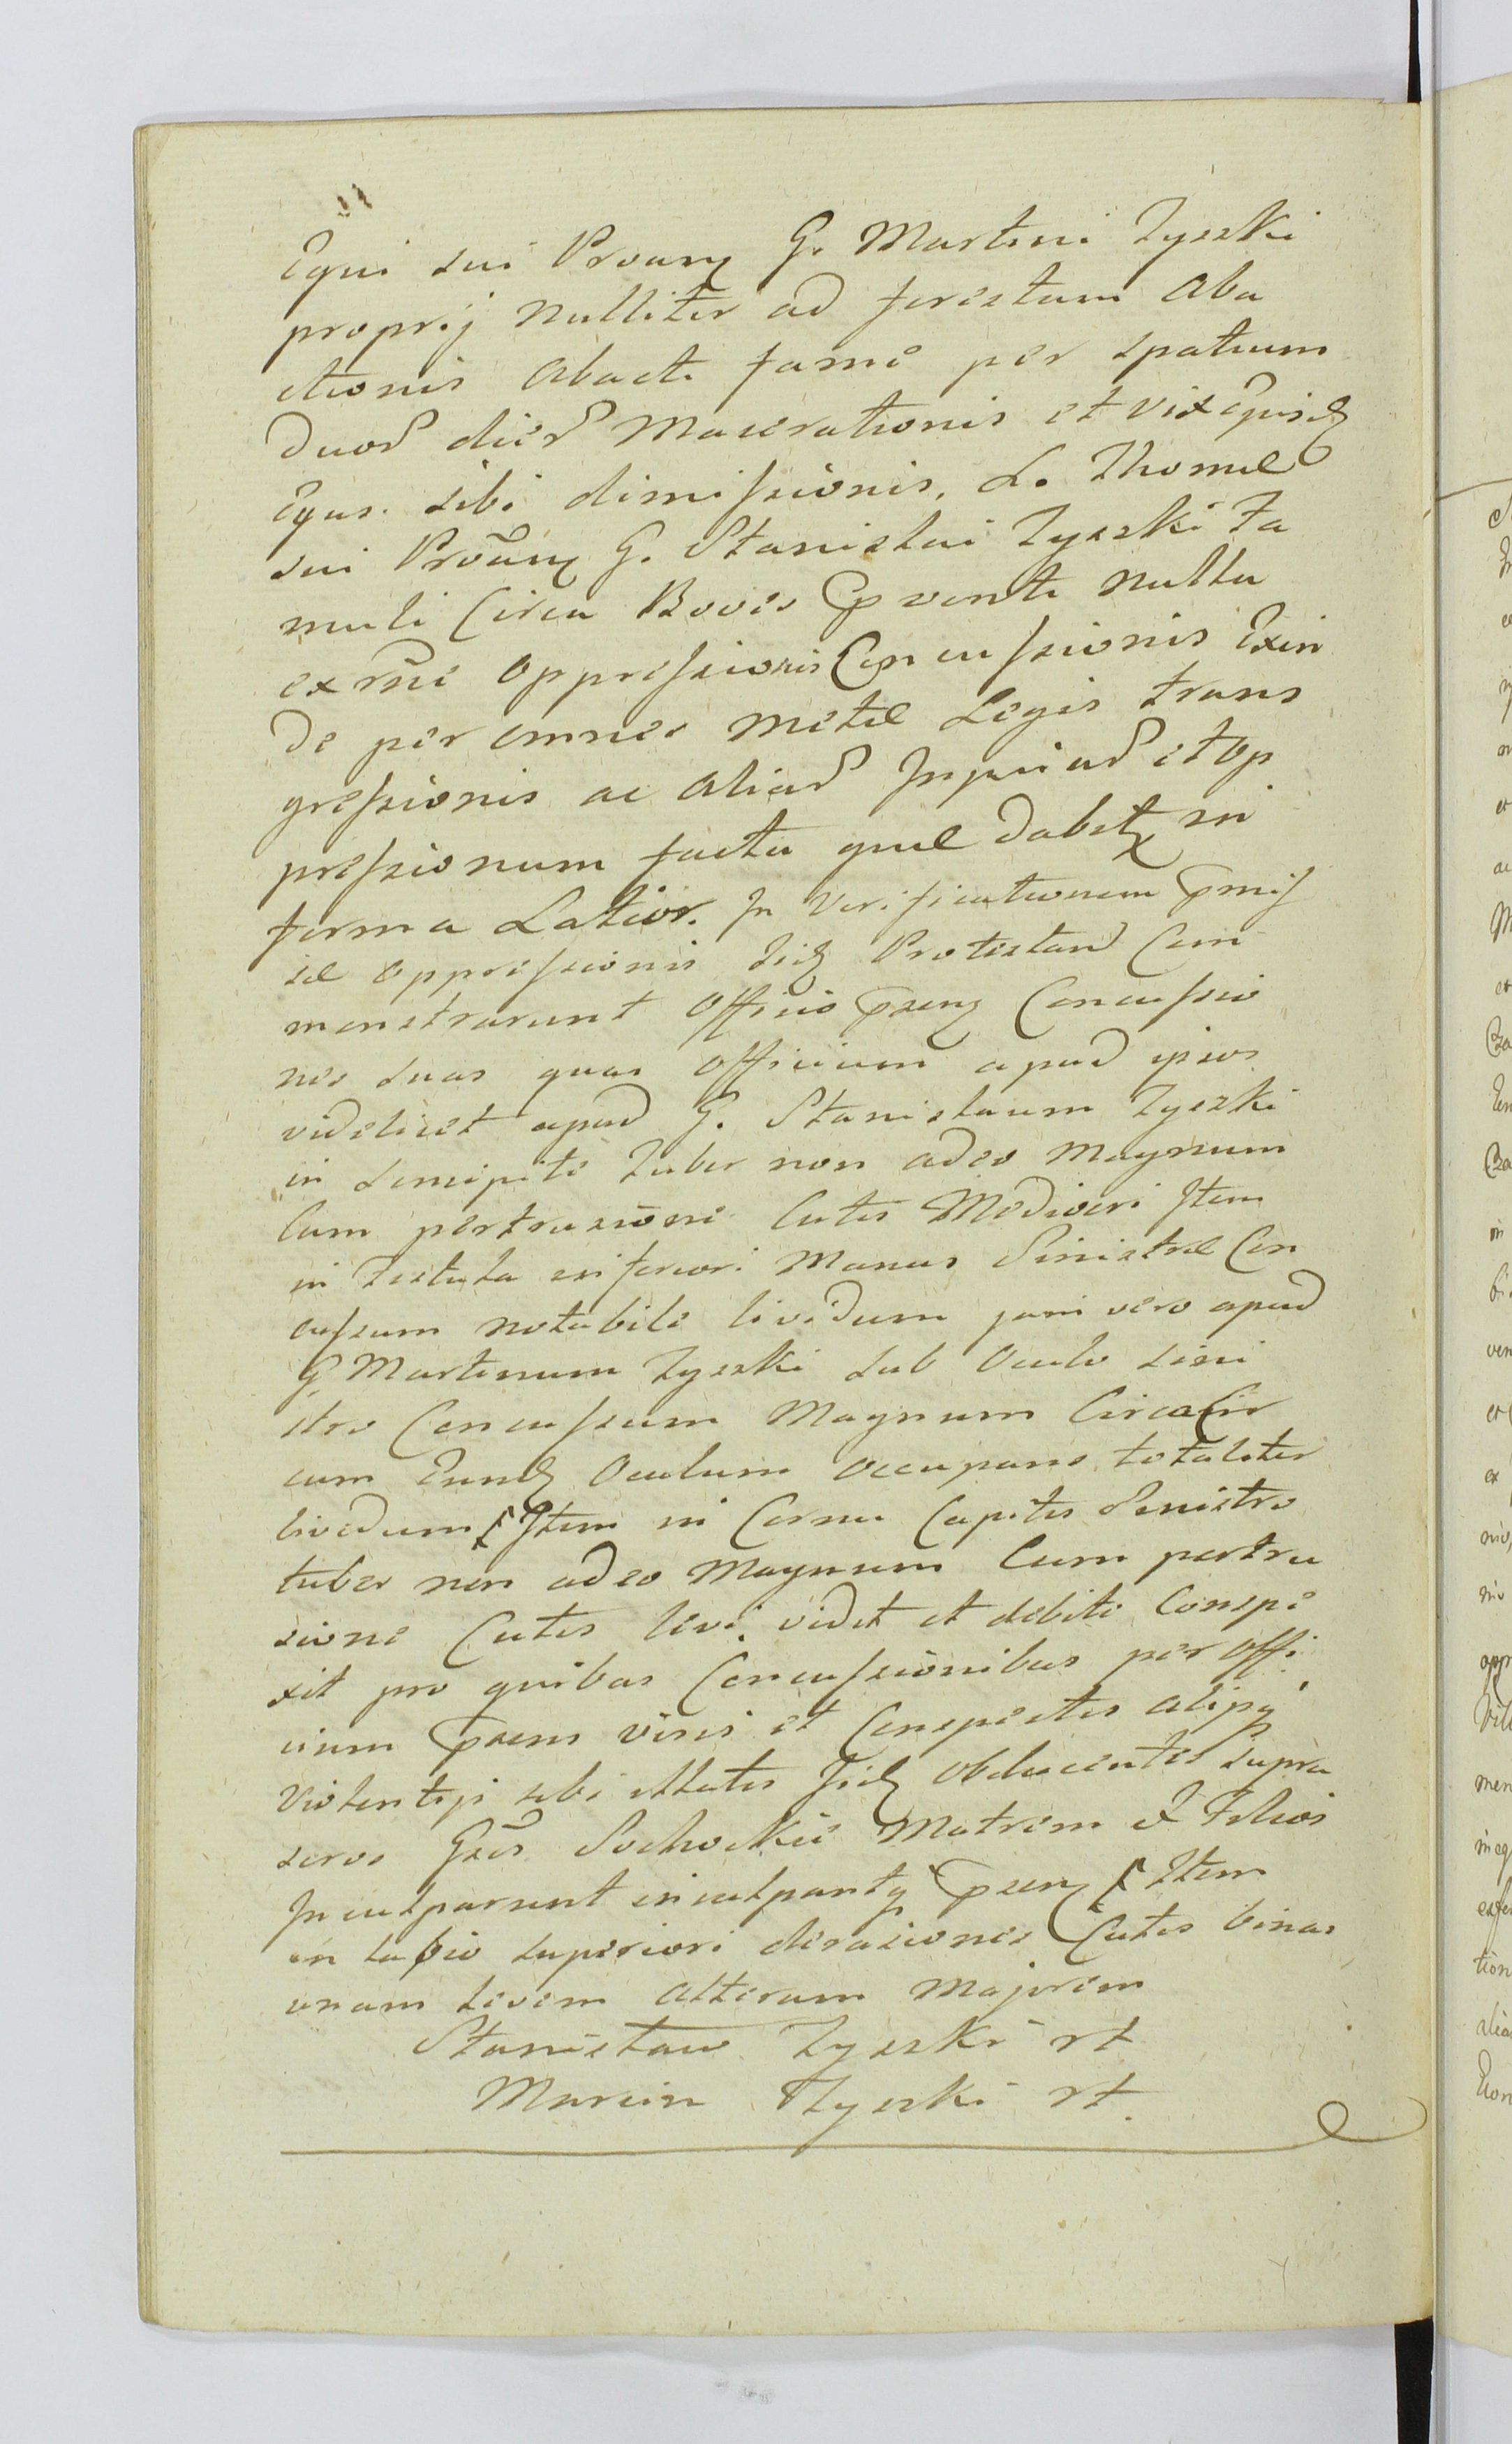 Equi sui Proñng G. Martini Zyzki
proprij nulliter ad forestum Aba
ctionis abacti fame per spatium
duor dier Macerationis et vix ejusdq
Equi sibi dimissionis, L. Thomæ
sui G. Stanislai Zyzki fa
muli Circa Boves existenti nulla
ex rñe oppressionis Concussionis Exin
de per omnes metæ Legis trans
gressionis ac aliar Injuriar et op
pressionum facta quæ dabitx in
forma Latior. In Verificationem pmis
sæ oppressionis Iidq Protestand Com
monstrarunt Officio pseng Concussio
nes suas quas Officium apud ipsos
videlicet apud G. Stanislaum Zyzki
in sincipite tuber non adeo Magnum
Cum pertrusione Cutis Mediocri Item
in inferiori Manus Sinistræ Con
cussum notabile lividum jam vero apud
G Martinum Zyzki sub Oculo sini
stro Concussum Magnum Circa Cir
cum Eundq Oculum occupans totaliter
lividum Item in Cornu Capitis Sinistro
tuber non adeo Magnum Cum pertru
sione Cutis levi vidit et debite Conspe
xit pro quibus Concussionibus per Offi
cium psens visis et Conspectis alijsq
violentijs sibi illatis Iidq Obducentes supra
Gsos Sochockie Matrem et Filios
Inculparunt inculpantq pseng Item
in labio superiori derasiones Cutis binas
unam levem alteram Majorem
Stanisław Zyzki rt
Marcin Zyzki rt.